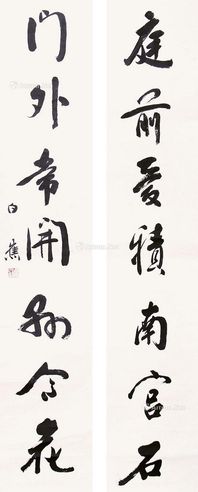 庭前愛積南宮石
門外常開縣令花
白蕉